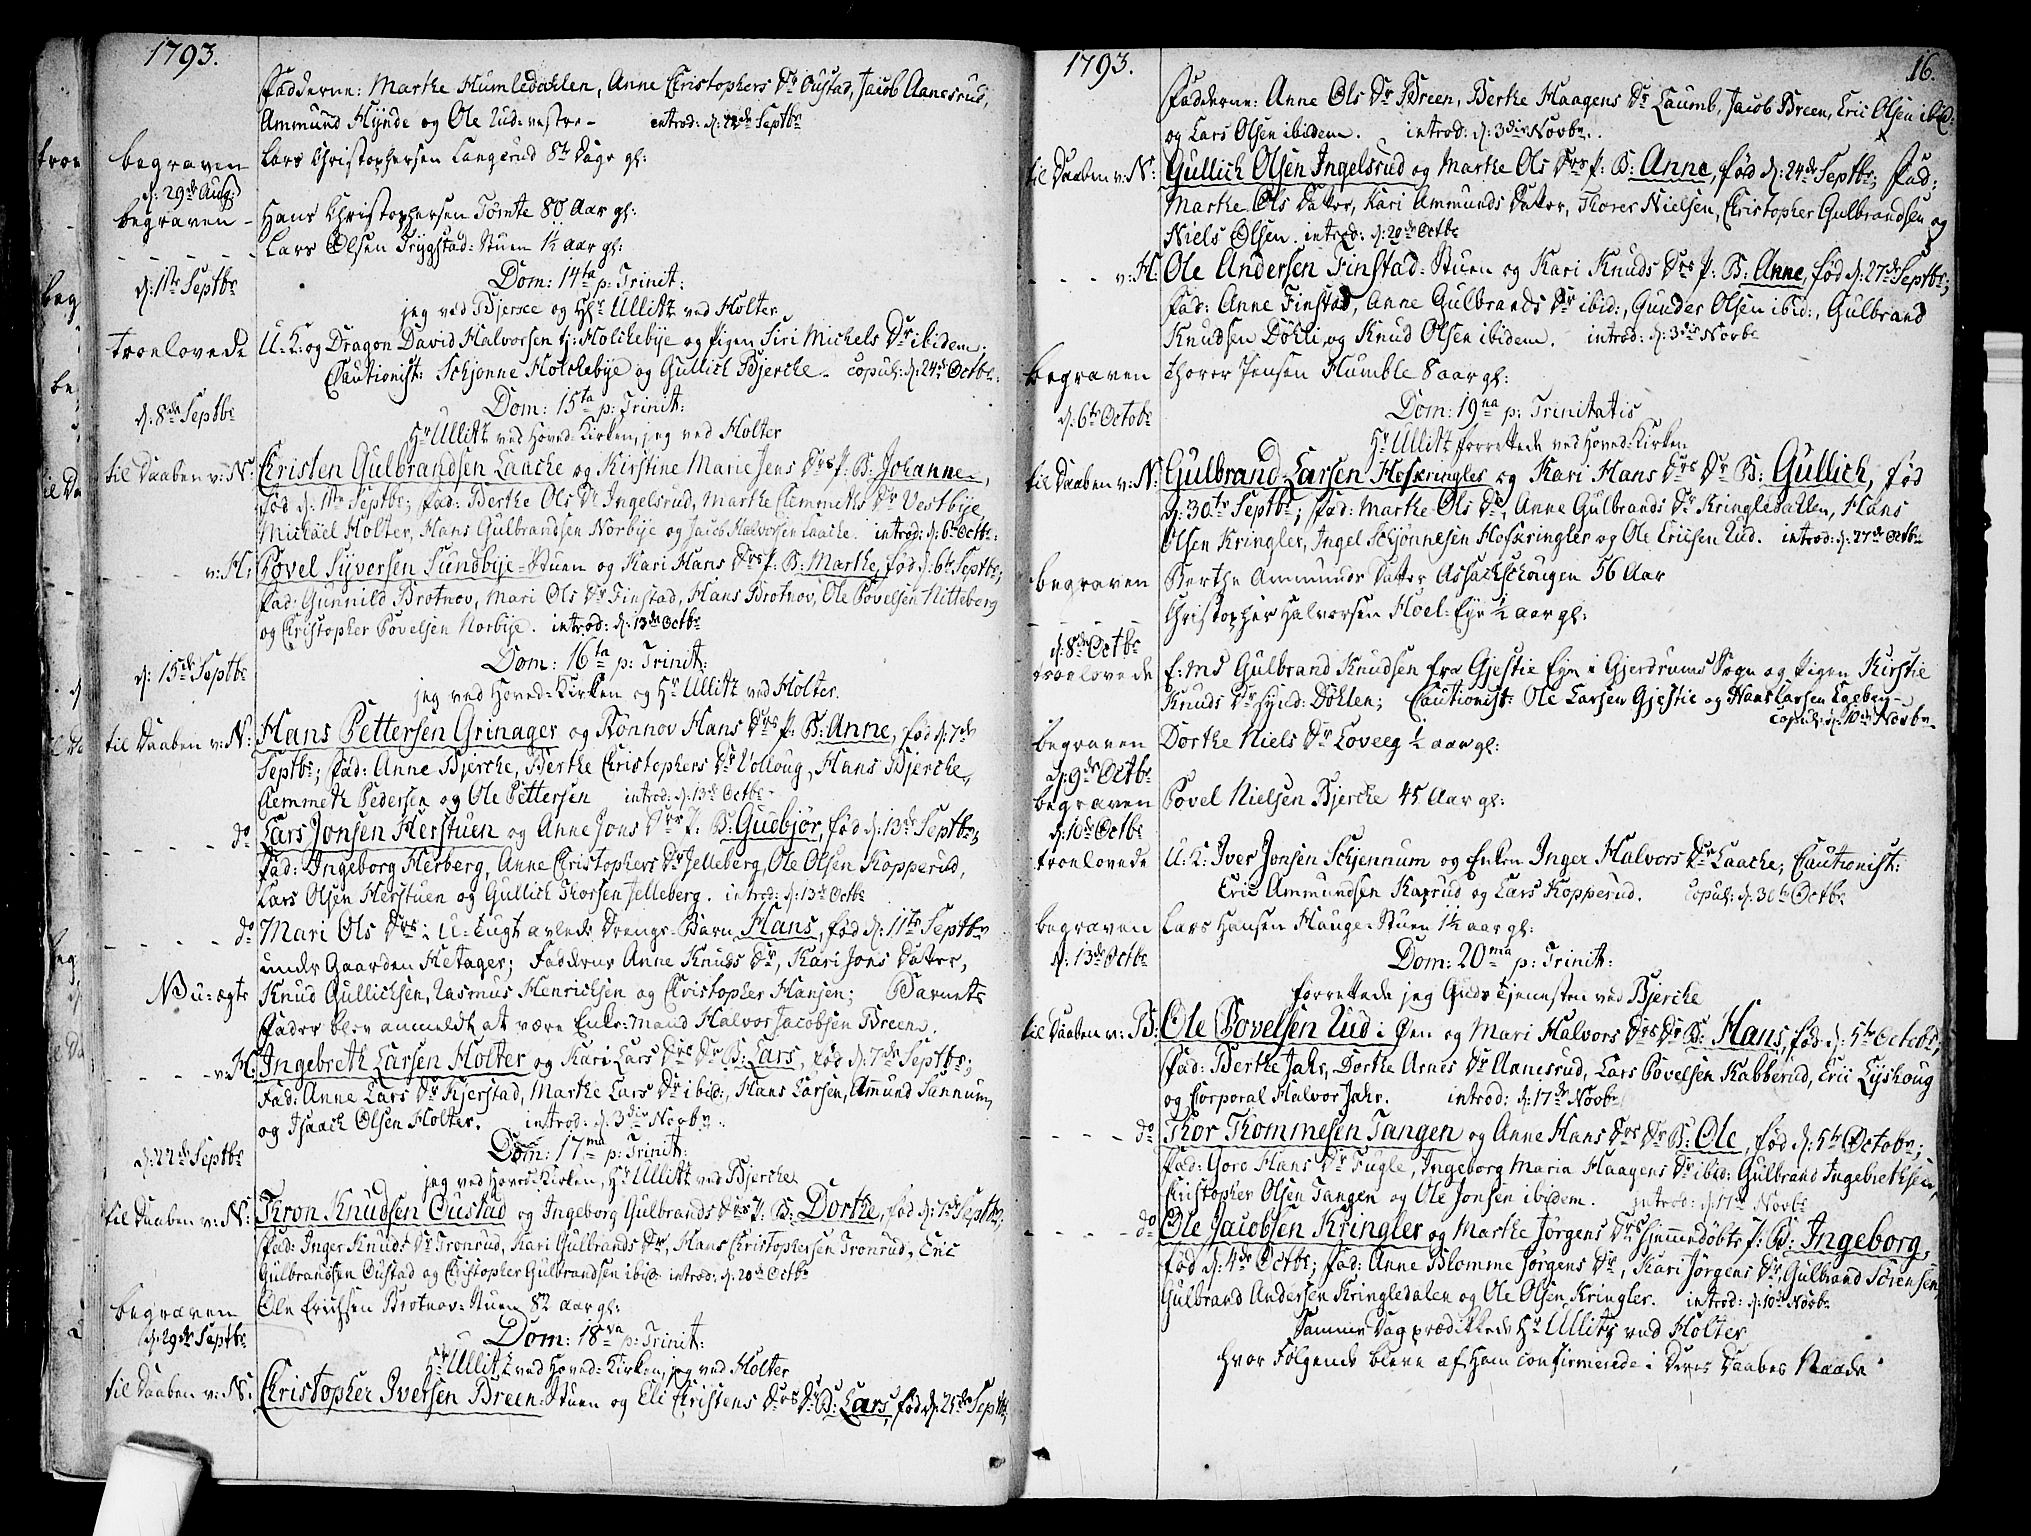 1793.
Fadderne: Marthe Humledahlen, Anne Christophers Dr Oustad, Jacob Aanesrud,
Ammund Hynde og Ole Rud: vestre - introd: d: 22de Septbr
begraven Lars Christophersen Langerud 8te Dage gl:
d: 29de Aug:
begraven - Hans Christophersen Tømte 80 Aar gl:
- - - - - Lars Olsen Trygstad-Stuen 1½ aar gl:
d: 1ste Septbr Dom: 14ta p: Trinit:
jeg ved Bjerche og Hr Ullitz ved Holter
troelovede U:K: og Dragon David Halvorsen Holchebye og Pigen Siri Michels Dr ibidem.
Cautionist: Schjønne Holchebye og Gullich Bjerche. copul: d: 24de Octbr.
d: 8de Septbr Dom: 15ta p: Trinit:
Hr Ullitz ved Hoved-Kirken, jeg ved Holter
til Daaben v: N: Christen Gulbrandsen Laache og Kirstine Marie Jens Drs P: B: Johanne,
fød d: 1ste Septbr; Fad: Berthe Ols Dr Ingelsrud, Marthe Clemmeths Dr Vestbye,
Michael Holter, Hans Gulbrandsen Norbye og Jacob Halvorsen Laache. introd: d: 6te Octbr:
- - - - v: H: Povel Syversen Sundbye-Stuen og Kari Hans Drs P: B: Marthe, fød d: 6te Septbr;
Fad: Gunnild Brotnov, Mari Ols Dr Finstad, Hans Brotnov, Ole Povelsen Nitteberg
og Christopher Povelsen Norbye. introd: d: 13de Octbr
d: 15de Septbr Dom: 16ta p: Trinit:
jeg ved Hoved-Kirken og Hr Ullitz ved Holter.
til Daaben v: N: Hans Pettersen Grinager og Rønnov Hans Drs P: B: Anne, fød d: 7de
Septbr; Fad: Anne Bjerche, Berthe Christophers Dr Volloug, Hans Bjerche,
Clemmeth Pedersen og Ole Pettersen introd: d: 13de Octbr.
- - - - - do Lars Jonsen Herstuen og Anne Jons Drs P: B: Gudbjør, fød d: 13de Septbr;
Fad: Ingeborg Herberg, Anne Christophers Dr Jelleberg, Ole Olsen Kopperud,
Lars Olsen Herstuen og Gullich Thorsen Jelleberg. introd: d: 13de Octbr
- - - - - do Mari Ols Drs: U-tugt avlede Drenge-Barn Hans, fød d: 11te Septbr
under Gaarden Hetager; Fadderne Anne Knuds Dr, Kari Jons Datter,
NB u-ægte Knud Gullichsen, Rasmus Henrichsen og Christopher Hansen; Barnets
Fader blev anmeldt at være Enke-Mand Halvor Jacobsen Breen.
- - - - v: H: Ingebreth Larsen Holter og Kari Lars Drs Dr: B: Lars, fød d: 7de Septbr;
Fad: Anne Lars Dr Kjerstad, Marthe Lars Dr ibid:, Hans Larsen, Amund Tannum,
og Isaach Olsen Holter. introd: d: 3die Novbr.
d: 22de Septbr Dom: 17ma p: Trinit:
jeg ved Hoved-Kirken, Hr Ullitz ved Bjerche
til Daaben v: N: Thron Knudsen Oustad og Ingeborg Gulbrands Drs P: B: Dorthe, fød d: 7de Septbr;
Fad: Inger Knuds Dr Tronrud, Kari Gulbrands Dr, Hans Christophersen Tronrud, Eric
Gulbrandsen Oustad og Christopher Gulbrandsen ibid: introd: d: 20de Octbr
begraven Ole Erichsen Brotnov-Stuen 82 aar gl:
d: 29de Septbr Dom: 18va p: Trinit:
Hr Ullitz ved Hoved-Kirken, jeg ved Holter
til Daaben v: N: Christopher Iversen Breen-Stuen og Eli Christens Drs Dr: B: Lars, fød d: 25de Septbr,
1793. 16.
Fadderne: Anne Ols Dr Breen, Berthe Haagens Dr Laumb, Jacob Breen, Eric Olsen ibid:
og Lars Olsen ibidem. introd: d: 3die Novbr.
til Daaben v: N: Gullich Olsen Ingelsrud og Marthe Ols Drs P: B: Anne, fød d: 24de Septbr; Fad:
Marthe Ols Datter, Kari Ammunds Datter, Thorer Nielsen, Christopher Gulbrandsen og
Niels Olsen. introd: d: 20de Octbr
- - - v: H: Ole Andersen Finstad-Stuen og Kari Knuds Drs P: B: Anne, fød d: 27de Septbr;
Fad: Anne Finstad, Anne Gulbrands Dr ibid:, Gunder Olsen ibid:, Gulbrand
Knudsen Døhli, og Knud Olsen ibidem. introd: d: 3die Novbr
begraven Thorer Jensen Humble 8 aar gl:
d: 6te Octobr Dom: 19na p: Trinitatis
Hr Ullitz forrettede ved Hoved-Kirken
til Daaben v: N: Gulbrand Larsen Hofskringler og Kari Hans Drs Dr B: Gullich, fød
d: 30te Septbr; Fad: Marthe Ols Dr, Anne Gulbrands Dr Kringledahlen, Hans
Olsen Kringler, Ingel Schjønnesen Hofskringler og Ole Erichsen Rud. introd: d: 27de Octbr
begraven Berthe Ammunds Datter Assachschougen 56 Aar
- - - - Christopher Halvorsen Hoel-Eye ½ aar gl:
d: 8de Octbr
troelovede E: M: S Gulbrand Knudsen fra Gjestie Eye i Gjerdrums Sogn og Pigen Kirstie
Knuds Dr Hynd: Døhlen; Cautionist: Ole Larsen Gjestie og Hans Larsen Lueberg.
copul: d: 10de Novbr.
begraven Dorthe Niels Dr Loveeg ½ aar gl:
d: 9de Octbr
begraven Povel Nielsen Bjerche 45 Aar gl:
d: 10de Octbr
troelovede U: K: Iver Jonsen Schjennum og Enken Inger Halvors Dr Laache, Cautionist:
Eric Ammundsen Kaxrud og Lars Kopperud. copul: d: 30te Octbr
begraven Lars Hansen Hauge-Stuen 1½ aar gl:
d: 13de Octbr Dom: 20ma p: Trinit:
forrettede jeg Guds Tjenesten ved Bjerche
til Daaben v: B: Ole Povelsen Rud i Øen og Mari Halvors Drs Dr B: Hans, fød d: 5te Octobr,
Fad: Berthe Jahr, Dorthe Arnes Dr Aanesrud, Lars Povelsen Kabberud, Eric Lyshoug
og Corporal Halvor Jahr. introd: d: 17de Novbr
- - - - do Thor Thommesen Tangen og Anne Hans Drs Dr B: Ole, fød d: 5te Octobr;
Fad: Goro Hans Dr Fugle, Ingeborg Maria Haagens Dr ibid: Gulbrand Ingebrethsen,
Christopher Olsen Tangen og Ole Jonsen ibidem. introd: d: 17de Novbr
- - - - do Ole Jacobsen Kringler og Marthe Jørgens Drs hjemmedøbte P: B: Ingeborg,
fød d: 4de Octbr; Fad: Anne Blomme Jørgens Dr, Kari Jørgens Dr, Gulbrand Sørensen,
Gulbrand Andersen Kringledalen og Ole Olsen Kringler. introd: d: 10de Novbr
Samme Dag prædikkede Hr Ullitz ved Holter
hvor Følgende bleve af Ham confirmerede i Deres Daabes Naade